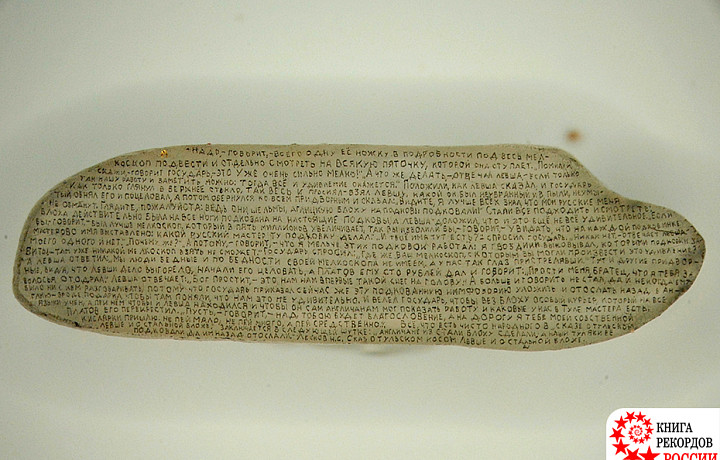 "Надо,-говорит,-всего одну её ножку в подробности под весь мел-
коскоп подвести и отдельно смотреть на всякую пяточку, которой она ступает". "Помилуй,
скажи,-говорит государь,-это уже очень сильно мелко!" "А что же делать,-отвечал левша,-если только
так нашу работу и заметить можно: тогда всё и удивление окажется". Положили, как левша сказал, и государь
как только глянул в верхнее стекло, так весь и просиял-взял левшу, какой он был неубранный и в пыли, неумы-
тый, обнял его и поцеловал, а потом обернулся ко всем придворным и сказал: "Видите, я лучше всех знал, что мои русские меня
не обманут. Глядите, пожалуйста: ведь они, шельмы, аглицкую блоху на подковы подковали!" Стали все подходить и смотреть:
блоха действительно была на все ноги подкована на настоящие подковы, а левша доложил, что и это ещё не всё удивительное. "Если
бы,-говорит,-был лучше мелкоскоп, который в пять миллионов увеличивает, так вы изволили бы,-говорит,-увидать, что на каждой подковинке
мастерово имя выставлено: какой русский мастер ту подковку делал". "И твоё имя тут есть?"-спросил государь. "Никак нет,-отвечает левша,-
моего одного и нет". "Почему же?" "А потому,-говорит,-что я мельче этих подковок работал: я гвоздики выковывал, которыми подковки за-
биты,-там уже никакой мелкоскоп взять не может". Государь спросил: "Где же ваш мелкоскоп, с которым вы могли произвести это удивление?"
А левша ответил: "Мы люди бедные и по бедности своей мелкоскопа не имеем, а у нас так глаз пристрелявши". Тут и другие придвор-
ные, видя, что левши дело выгорело, начали его целовать, а Платов ему сто рублей дал и говорит: "Прости меня, братец, что я тебя за
волосья отодрал". Левша отвечает: "Бог простит,-это нам не впервые такой снег на голову". А больше и говорить не стал, да и некогда ему
было ни с кем разговаривать, потому что государь приказал сейчас же эту подкованную нимфозорию уложить и отослать назад в Ан-
глию-вроде подарка, чтобы там поняли, что нам это не удивительно. И велел государь, чтобы вёз блоху особый курьер, который на все
языки учён, а при нём чтобы и левша находился и чтобы он сам англичанам мог показать работу и каковые у нас в Туле мастера есть.
Платов его перекрестил. "Пусть,-говорит,-над тобою будет благословение, а на дорогу я тебе моей собственной
кислярки пришлю. Не пей мало, не пей много, а пей средственно".